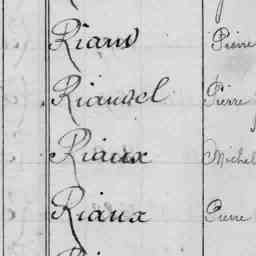 Riaux Pierre
Riauxel Pierre
Riaux Michel
Riaux Pierre